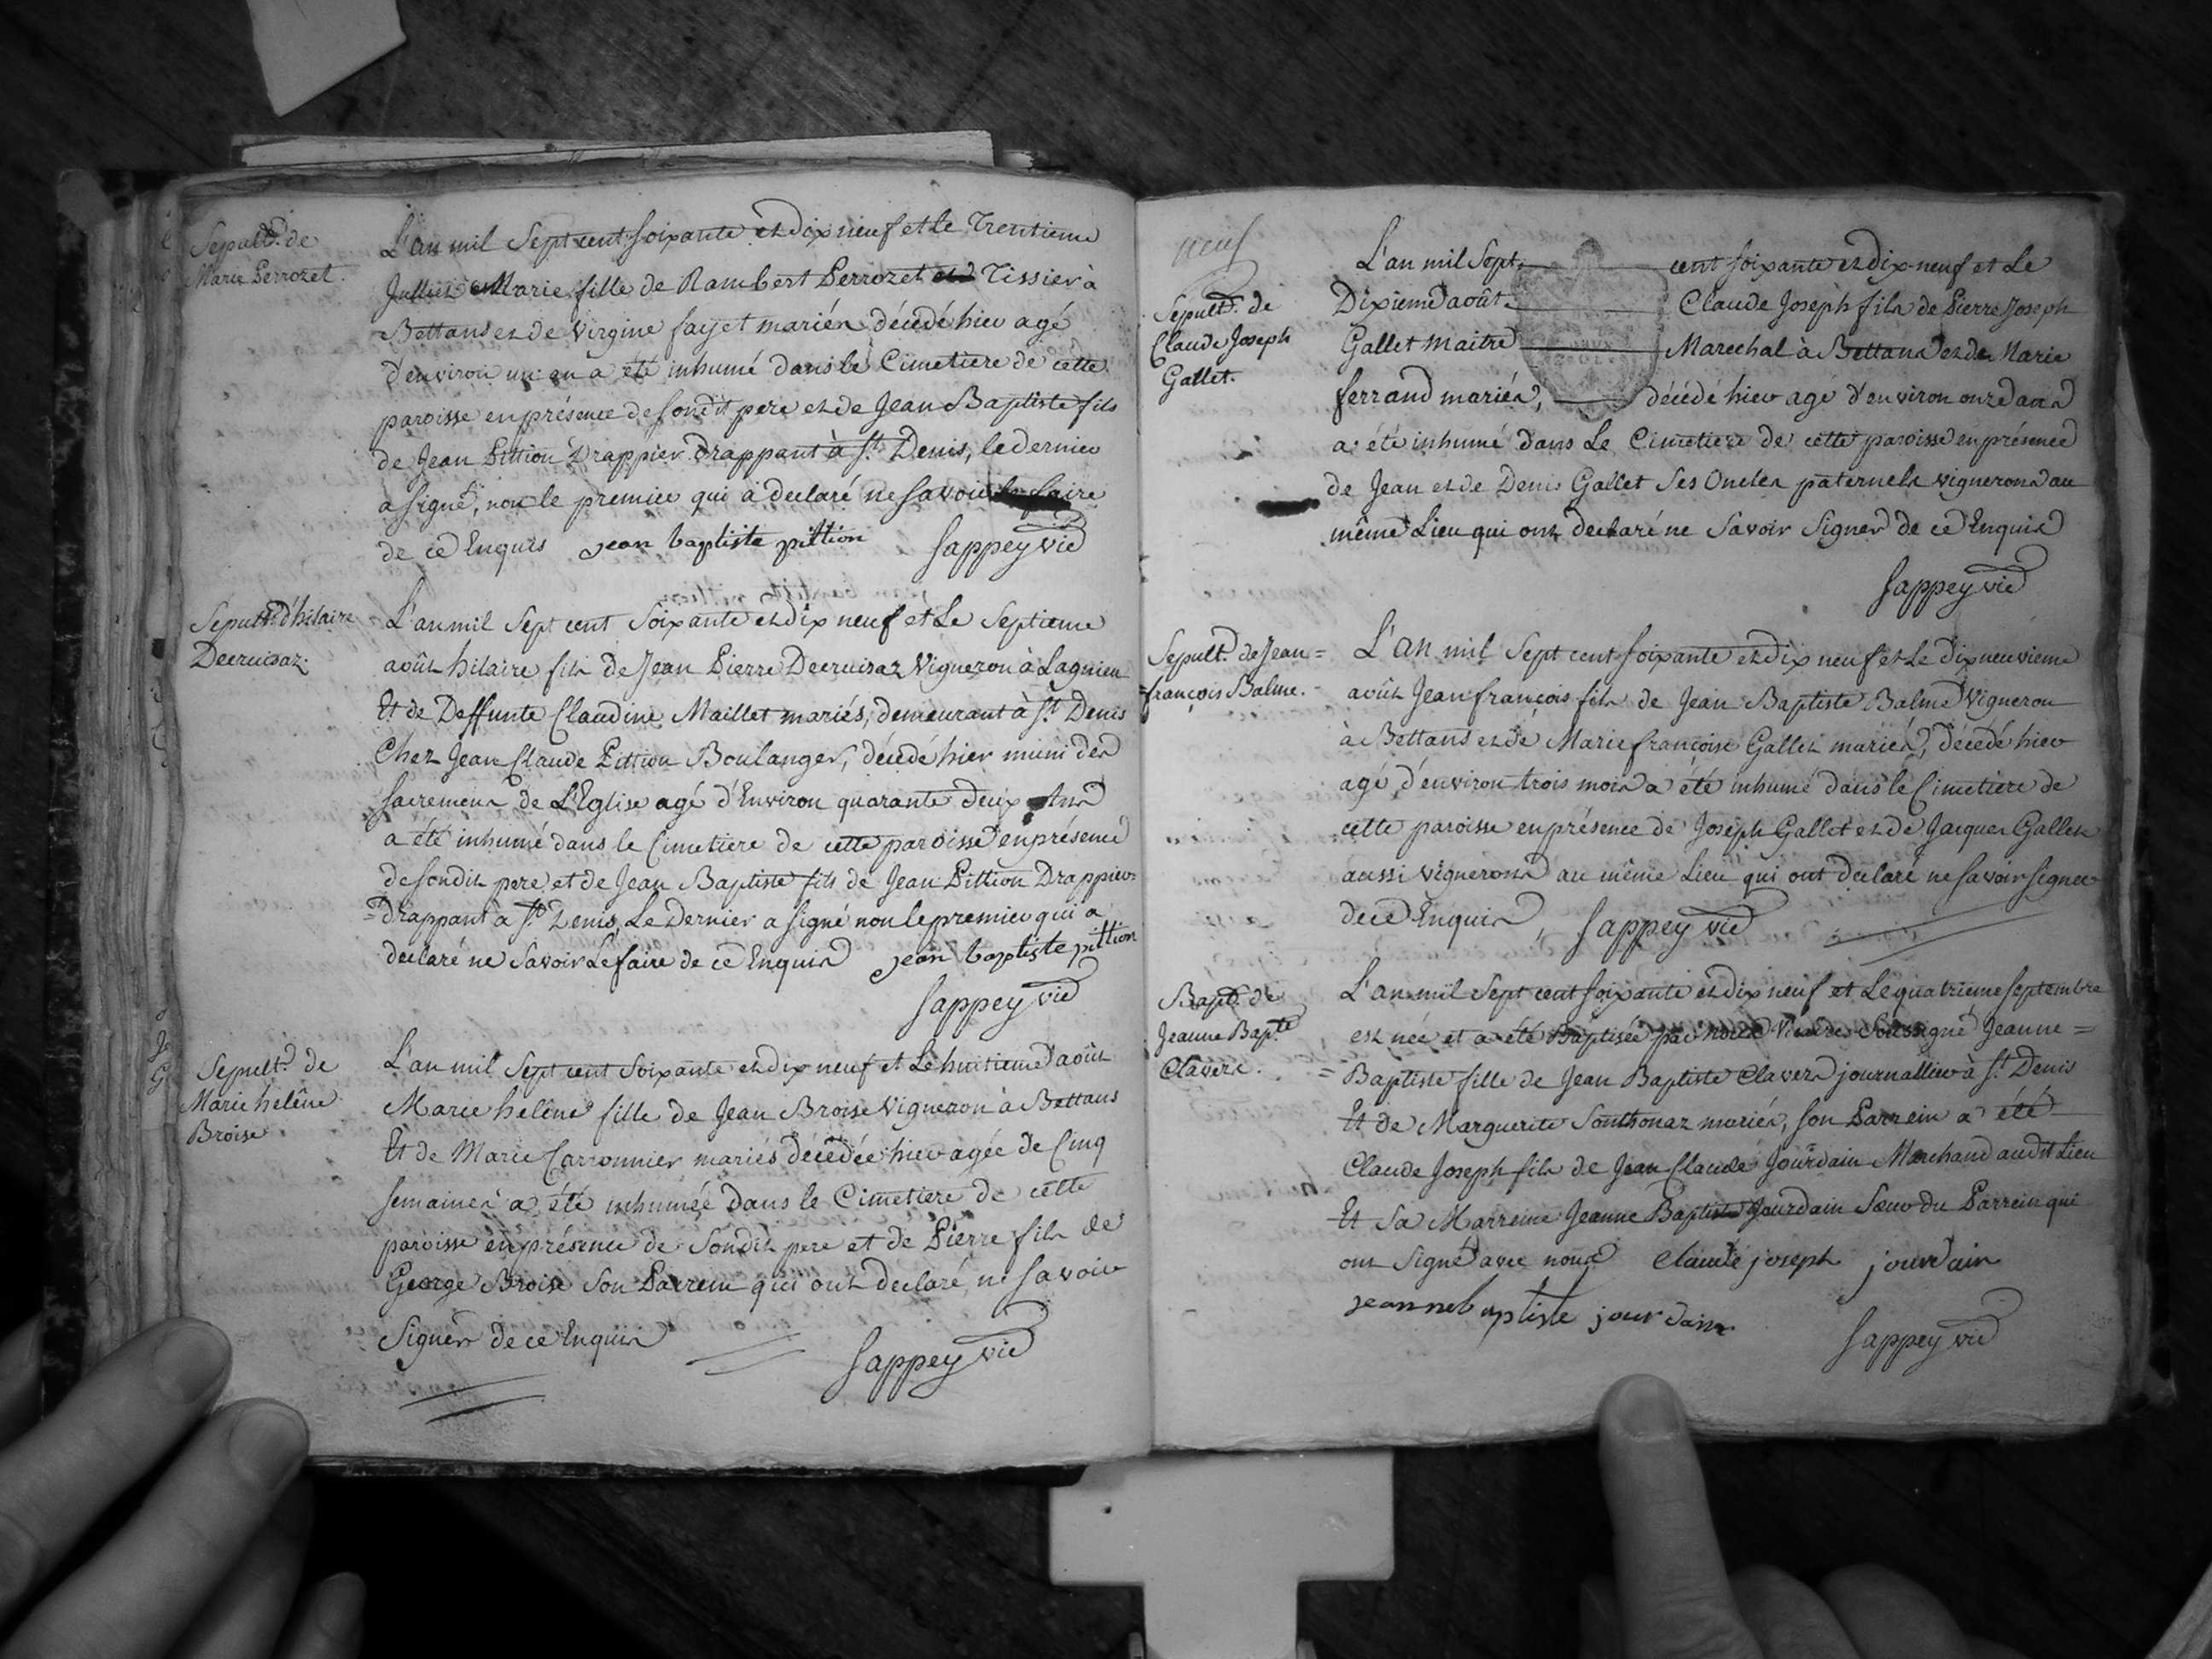 Sepult.e de
Marie Perrozet.
L'an mil Sept cent soixante et dix neuf et le Trentieme
Juillet Marie fille de Rambert Perrozet Tissier à
Bettans et de Virgine fayet mariés décédé hier agé
d'environ un an a été inhumé dans le Cimetiere de cette
paroisse en présence de sondit pere et de Jean Baptiste fils
de Jean Pittion Drappier drappant à St. Denis, le dernier
a signé, non le premier qui a declaré ne savoir le faire
de ce Enquis jean baptiste pittion Sappey vic
Sepult.e d'hilaire
Decruisaz.
L'an mil Sept cent Soixante et dix neuf et Le Septieme
août hilaire fils de Jean Pierre Decruisaz Vigneron à Lagnieu
Et de Deffunte Claudine Maillet mariés, demeurant à St. Denis
Chez Jean Claude Pittion Boulanger, décédé hier muni des
sacremens de L'Eglise agé d'Environ quarante deux Ans
a été inhumé dans le Cimetiere de cette paroisse en présence
de sondit pere et de Jean Baptiste fils de Jean Pittion Drappier
=drappant à St. Denis, Le Dernier a signé non le premier qui a
declaré ne Savoir Le faire de ce Enquis jean baptiste pittion
Sappey vic
Sepult.e de
Marie heléne
Broise
L'an mil Sept cent Soixante et dix neuf et Le huitieme août
Marie heléne fille de Jean Broise Vigneron à Bettans
Et de Marie Carronnier mariés décédée hier agée de Cinq
semaines a été inhumée dans le Cimetiere de cette
paroisse en présence de Sondit pere et de Pierre fils de
George Broise Son Parrein qui ont declaré ne savoir
Signer de ce Enquis Sappey vic
neuf
Sepult.e de
Claude Joseph
Gallet.
L'an mil Sept cent soixante et dix neuf et Le
Dixieme août Claude Joseph fils de Pierre Joseph
Gallet maitre Marechal à Bettans et de Marie
ferrand mariés, décédé hier agé d'environ onze ans
a été inhumé dans Le Cimetiere de cette paroisse en présence
de Jean et de Denis Gallet Ses Oncles paternels vignerons au
même Lieu qui ont declaré ne Savoir Signer de ce Enquis
Sappey vic
Sepult.e de Jean=
françois Balme.
L'an mil Sept cent soixante et dix neuf et Le dix neuvieme
août Jean françois fils de Jean Baptiste Balme Vigneron
à Bettans et de Marie françoise Gallet mariés, décédé hier
agé d'environ trois mois a été inhumé dans le Cimetiere de
cette paroisse en présence de Joseph Gallet et de Jacques Gallet
aussi vignerons au même Lieu qui ont declaré ne savoir signer
de ce Enquis, Sappey vic
Bapt.e de
Jeanne Bap.te
Clavers.
L'an mil Sept cent soixante et dix neuf et Le quatrieme septembre
est née et a été Baptisée par Nous Vicaire Soussigné Jeanne=
=Baptiste fille de Jean Baptiste Clavers journallier à St. Denis
Et de Marguerite Sonthonaz mariés, son Parrein a été
Claude Joseph fils de Jean Claude Jourdain Marchand audit Lieu
Et Sa Marreine Jeanne Baptiste Jourdain Sœur du Parrein qui
ont Signé avec nous Claude joseph jourdain
jeanne baptiste jourdain Sappey vic